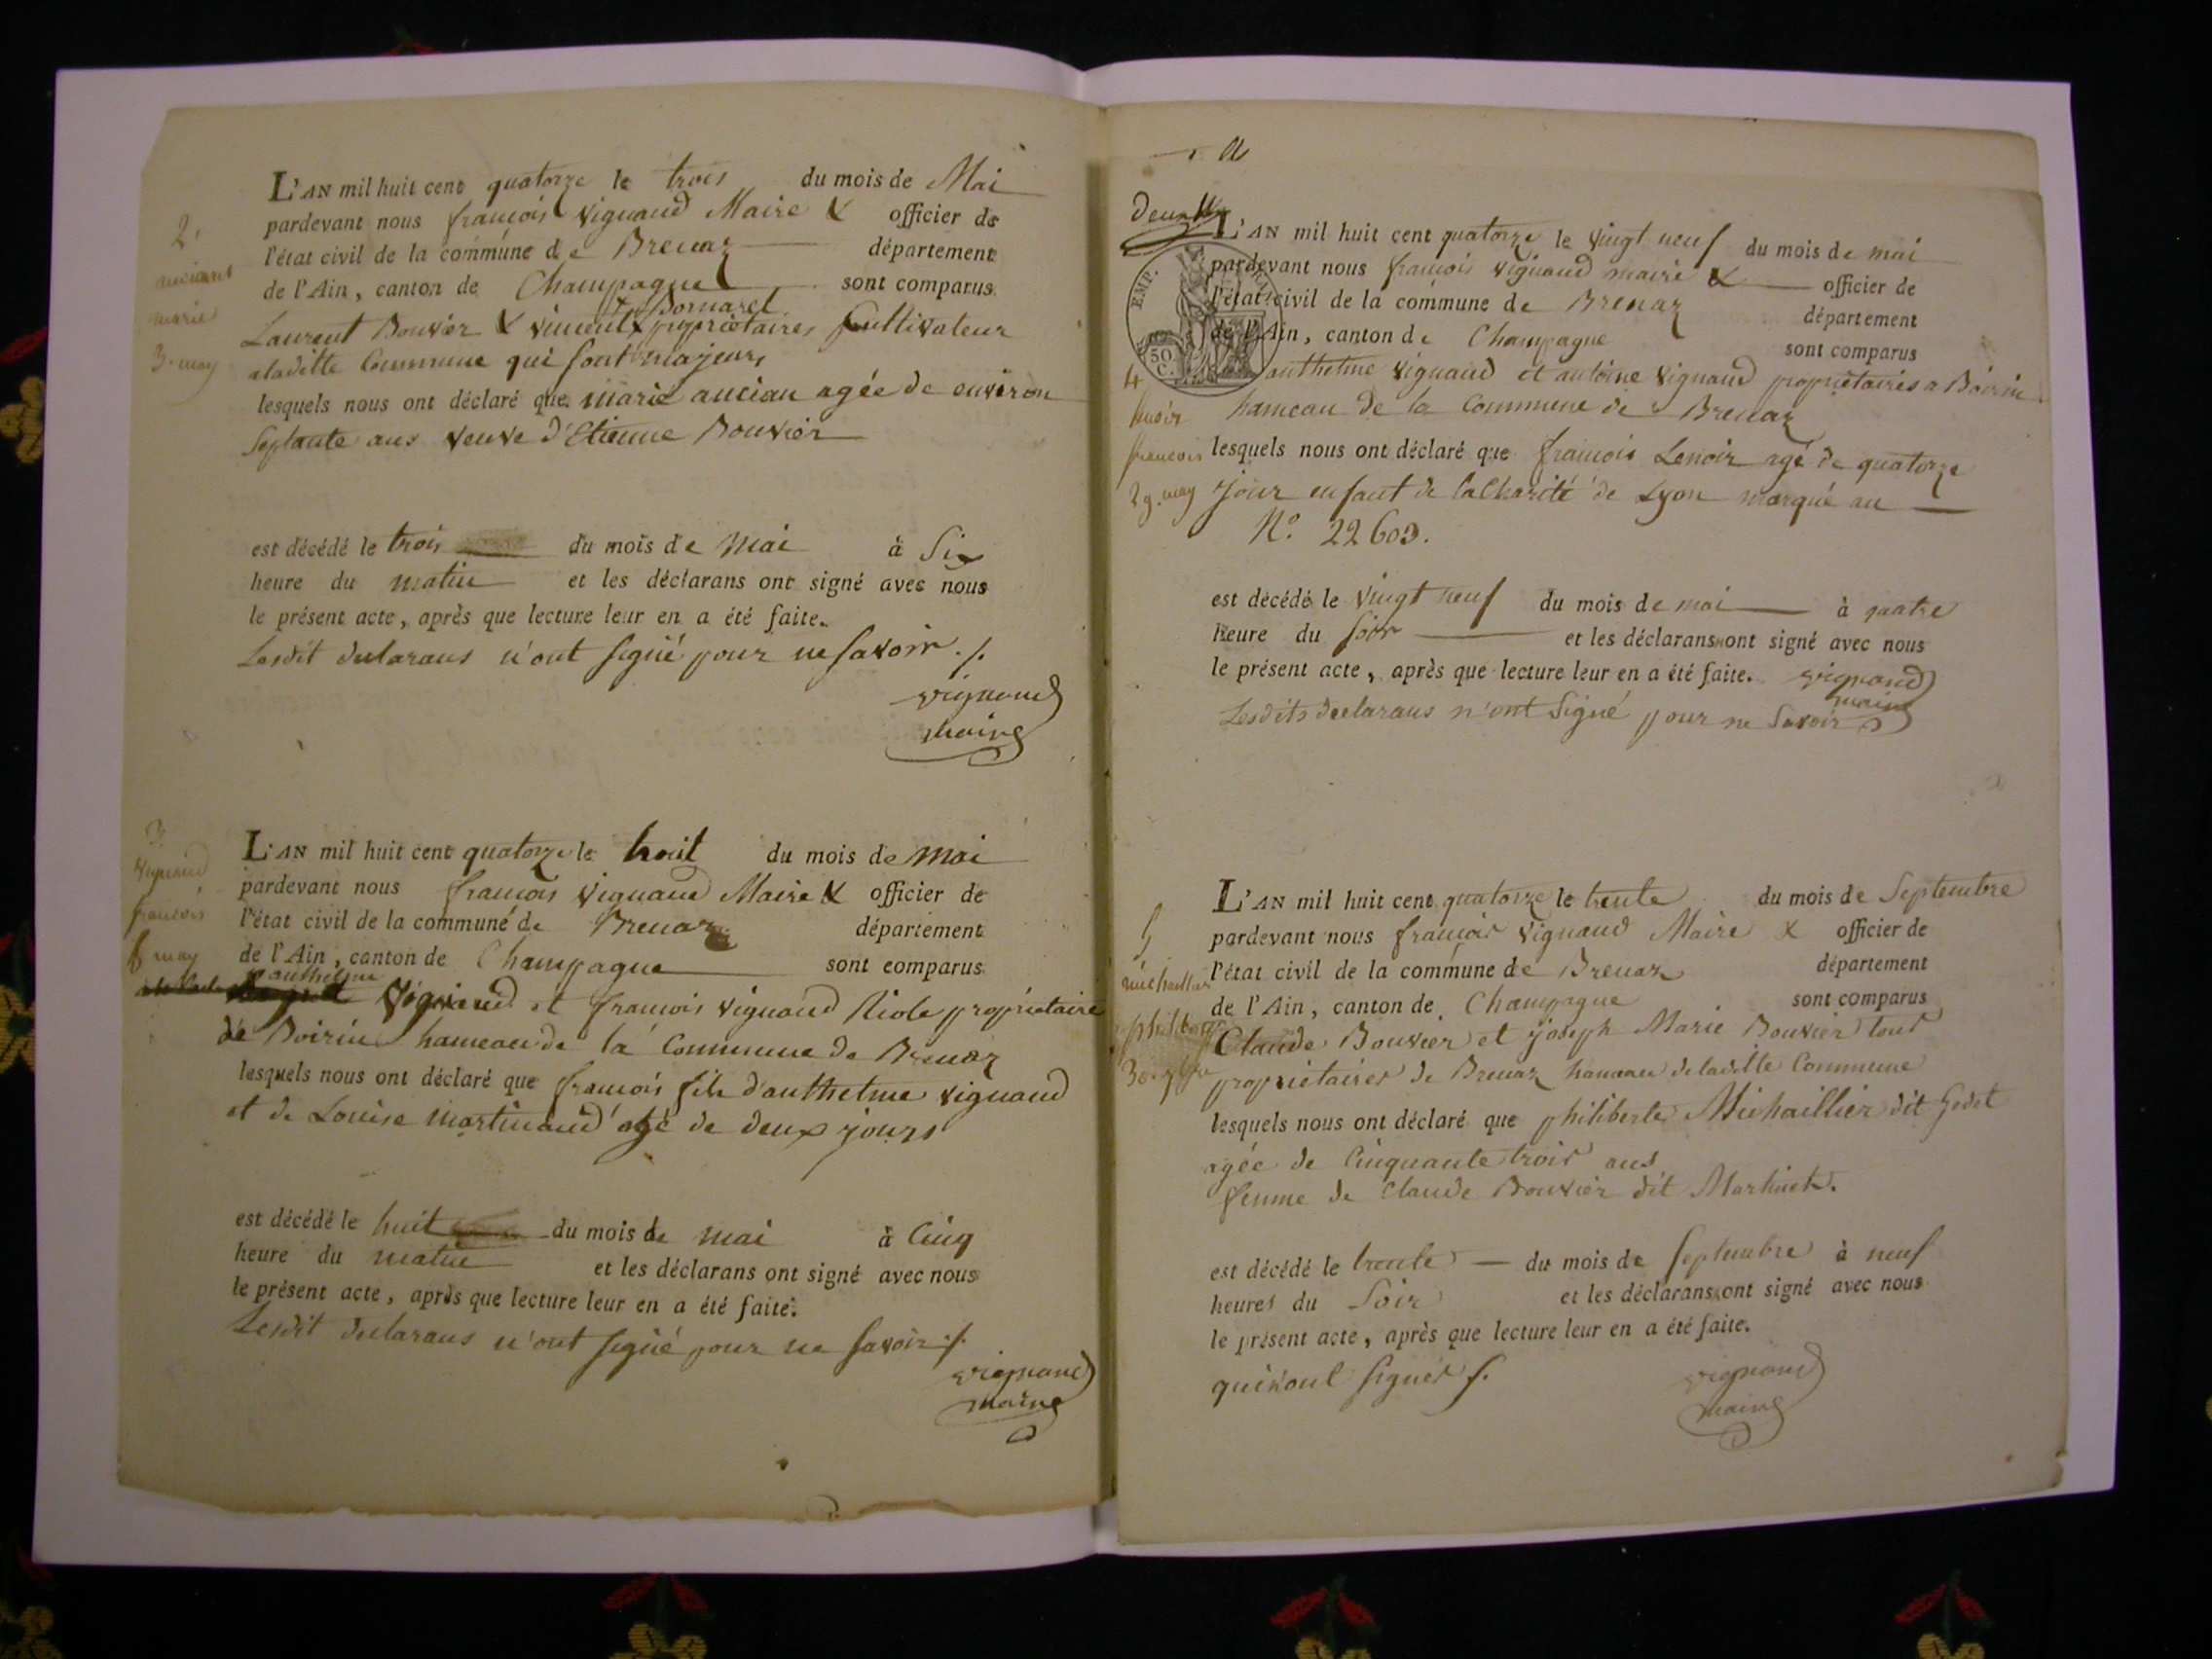 2.
anciant
marie
3. may
L'AN mil huit cent quatorze le trois du mois de Mai
pardevant nous françois Vignaud Maire & officier de
l'état civil de la commune de Brenaz département
de l'Ain, canton de Champagne sont comparus
+ Bornarel
Laurent Bouvier & vincent + propriétaires Cultivateur
aladitte Commune qui sont majeurs
lesquels nous ont déclaré que marie ancian agée de environ
Septante ans veuve d'Etienne Bouvier
est décédé le trois du mois de Mai à Six
heure du matin et les déclarans ont signé avec nous
le présent acte, après que lecture leur en a été faite.
Lesdit declarans n'ont signé pour ne savoir ./.
vignaud
maire
3
vignaud
françois
8 may
L'AN mil huit cent quatorze le huit du mois de mai
pardevant nous françois Vignaud Maire & officier de
l'état civil de la commune de Brenaz département
de l'Ain, canton de Champagne sont comparus
anthelme
Vignaud et françois vignaud Riole propriétaire
de Boirin hameau de la Commune de Brenaz
lesquels nous ont déclaré que françois fils d'anthelme vignaud
et de Louise martinaud agé de deux jours
est décédé le huit du mois de mai à Cinq
heure du matin et les déclarans ont signé avec nous
le présent acte, après que lecture leur en a été faite.
Lesdit declarans n'ont signé pour ne savoir ./.
vignaud
maire
Deux
EMP.
50
C.
4
lenoir
françois
29. may
L'AN mil huit cent quatorze le vingt neuf du mois de mai
pardevant nous françois vignaud maire & officier de
l'état civil de la commune de Brenaz département
de l'Ain, canton de Champagne sont comparus
anthelme vignaud et antoine vignaud propriétaires a Boirin
hameau de la Commune de Brenaz
lesquels nous ont déclaré que françois Lenoir agé de quatorze
jour enfant de la Charité de Lyon marqué au
N.o 22603.
est décédé le vingt neuf du mois de mai à quatre
heure du soir et les déclarans ont signé avec nous
le présent acte, après que lecture leur en a été faite. vignaud
maire
Lesdits declarans n'ont Signé pour ne Savoir
5
michaillier
philiberte
30. 7bre
L'AN mil huit cent quatorze le trente du mois de Septembre
pardevant nous françois vignaud Maire & officier de
l'état civil de la commune de Brenaz département
de l'Ain, canton de Champagne sont comparus
Claude Bouvier et joseph Marie Bouvier tout
propriétaires de Brenaz hameau deladitte Commune
lesquels nous ont déclaré que philiberte Michaillier dit Godet
agée de Cinquante trois ans
femme de Claude Bouvier dit Martinet.
est décédé le trente du mois de septembre à neuf
heures du Soir et les déclarans ont signé avec nous
le présent acte, après que lecture leur en a été faite.
vignaud
maire